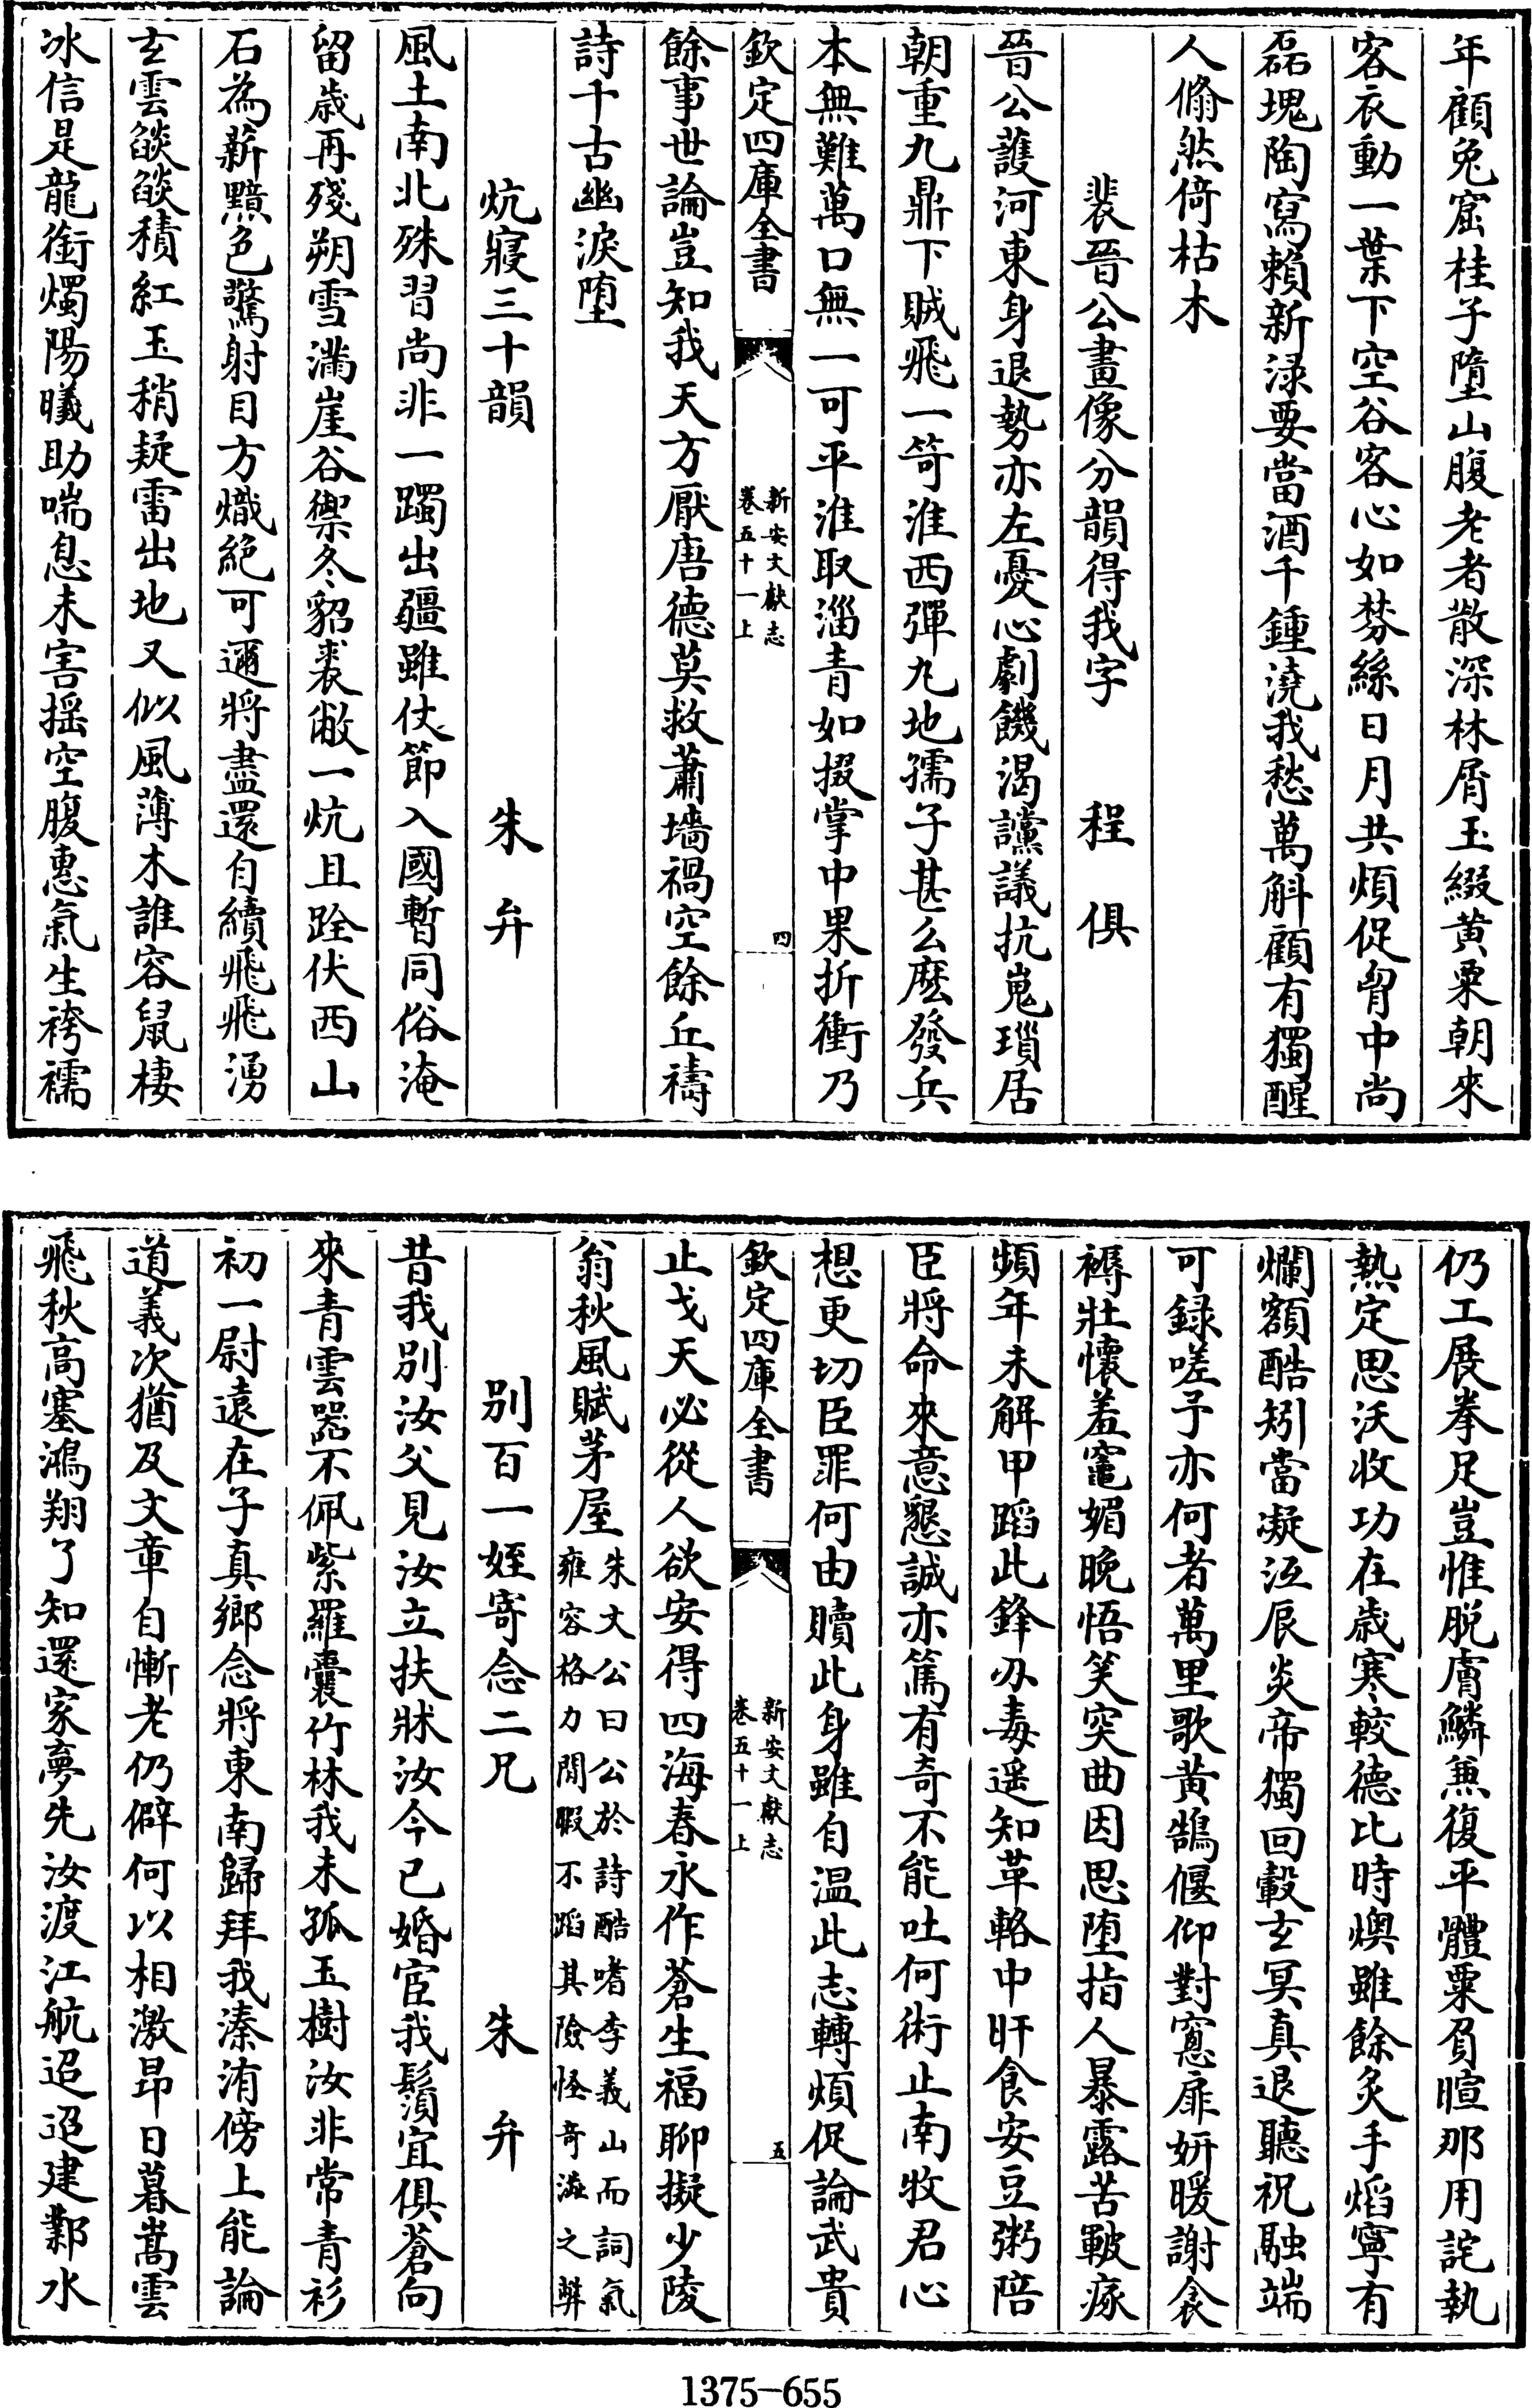 年顧兔窟桂子墮山腹老者散深林屑玉綴黄粟朝來
客衣動一葉下空谷客心如棼絲日月共煩促胷中尚
磊塊陶寫賴新渌要當酒千鍾澆我愁萬斛顧有獨醒
人翛然倚枯木
裴晉公畫像分韻得我字 程俱
晉公䕶河東身退勢亦左憂心劇饑渇讜議抗嵬瑣居
朝重九鼎下賊飛一笴淮西彈丸地孺子甚么麽發兵
本無難萬口無一可平淮取淄青如掇掌中果折衝乃
欽定四庫全書 新安文獻志 卷五十一上 四
餘事世論豈知我天方厭唐德莫救蕭墻禍空餘丘禱
詩千古幽淚堕
炕寢三十韻 朱弁
風土南北殊習尚非一躅出疆雖仗節入國暫同俗淹
留歳再殘朔雪滿崖谷禦冬貂裘敝一炕且跧伏西山
石為薪黝色驚射目方熾絶可邇將盡還自續飛飛湧
玄雲燄燄積紅玉稍疑雷出地又似風薄木誰容鼠棲
冰信是龍銜燭陽曦助喘息未害揺空腹惠氣生袴襦
仍工展拳足豈惟脱膚鱗兼復平體粟負暄那用詫執
熱定思沃收功在歳寒較德比時燠雖餘炙手焰寧有
爛額酷矧當凝沍辰炎帝獨回轂玄冥真退聽祝融端
可録嗟予亦何者萬里歌黄鵠偃仰對窻扉妍暖謝衾
褥壯懐羞竈媚晩悟笑突曲因思堕指人暴露苦皸瘃
頻年未解甲蹈此鋒刃毒遥知革輅中旰食安豆粥陪
臣將命來意懇誠亦篤有奇不能吐何術止南牧君心
想更切臣罪何由贖此身雖自温此志轉煩促論武貴
欽定四庫全書 新安文獻志 卷五十一上 五
止戈天必從人欲安得四海春永作蒼生福聊擬少陵
翁秋風賦茅屋 朱文公曰公於詩酷嗜李義山而詞氣
雍容格力閒暇不蹈其險怪奇澁之弊
别百一姪寄念二兄 朱弁
昔我别汝父見汝立扶牀汝今已婚宦我鬚宜俱蒼向
來青雲器不佩紫羅囊竹林我未孤玉樹汝非常青衫
初一尉逺在子真鄉念將東南歸拜我溱洧傍上能論
道義次猶及文章自慚老仍僻何以相激昂日暮嵩雲
飛秋高塞鴻翔了知還家夢先汝渡江航迢迢建鄴水
1375-655